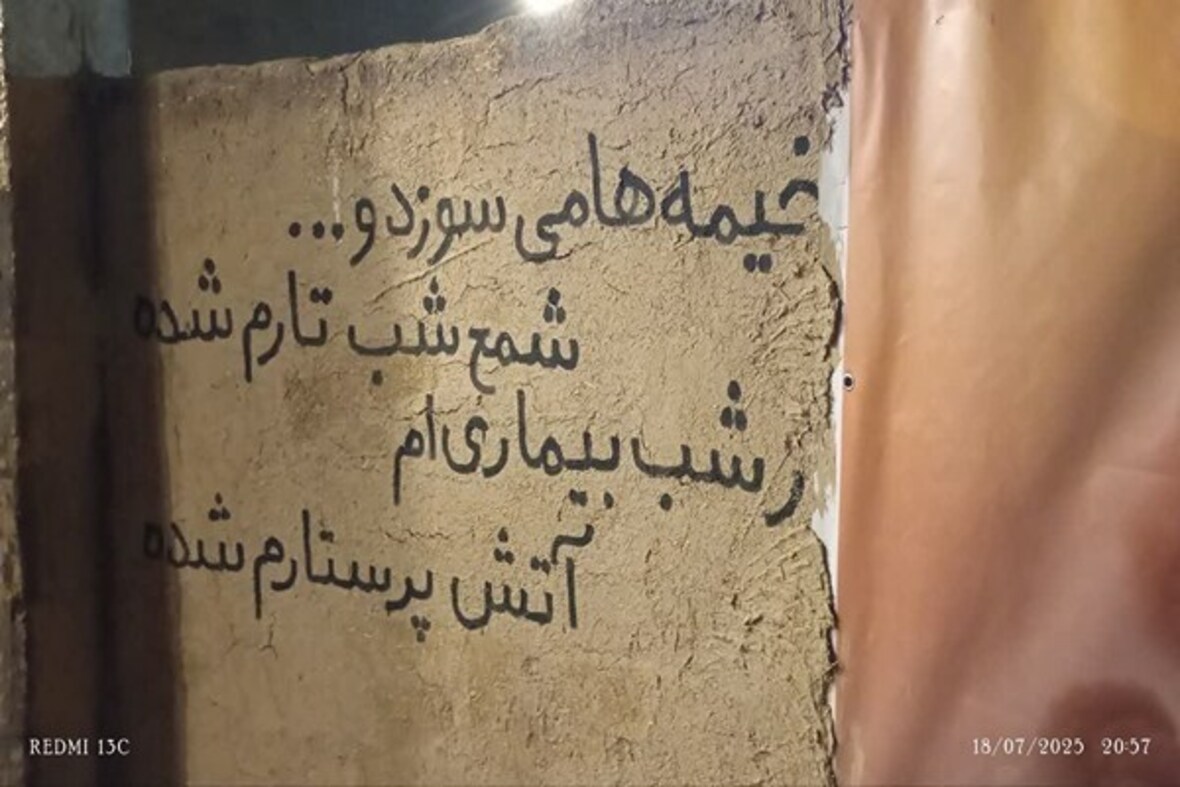 خیمه ها می سوزد و...
شمع شب تارم شده
ر شب بیماری ام
آتش پرستارم شده
REDMI 13C
18/07/2025 20:57